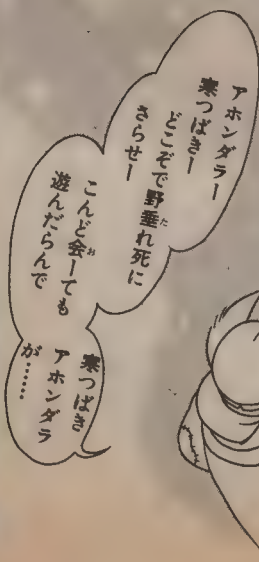 アホンダラー
寒つばきー
どこぞで野垂れ死に
さらせー
こんど会ーても
遊んだらんで
寒つばき
アホンダラ
が……